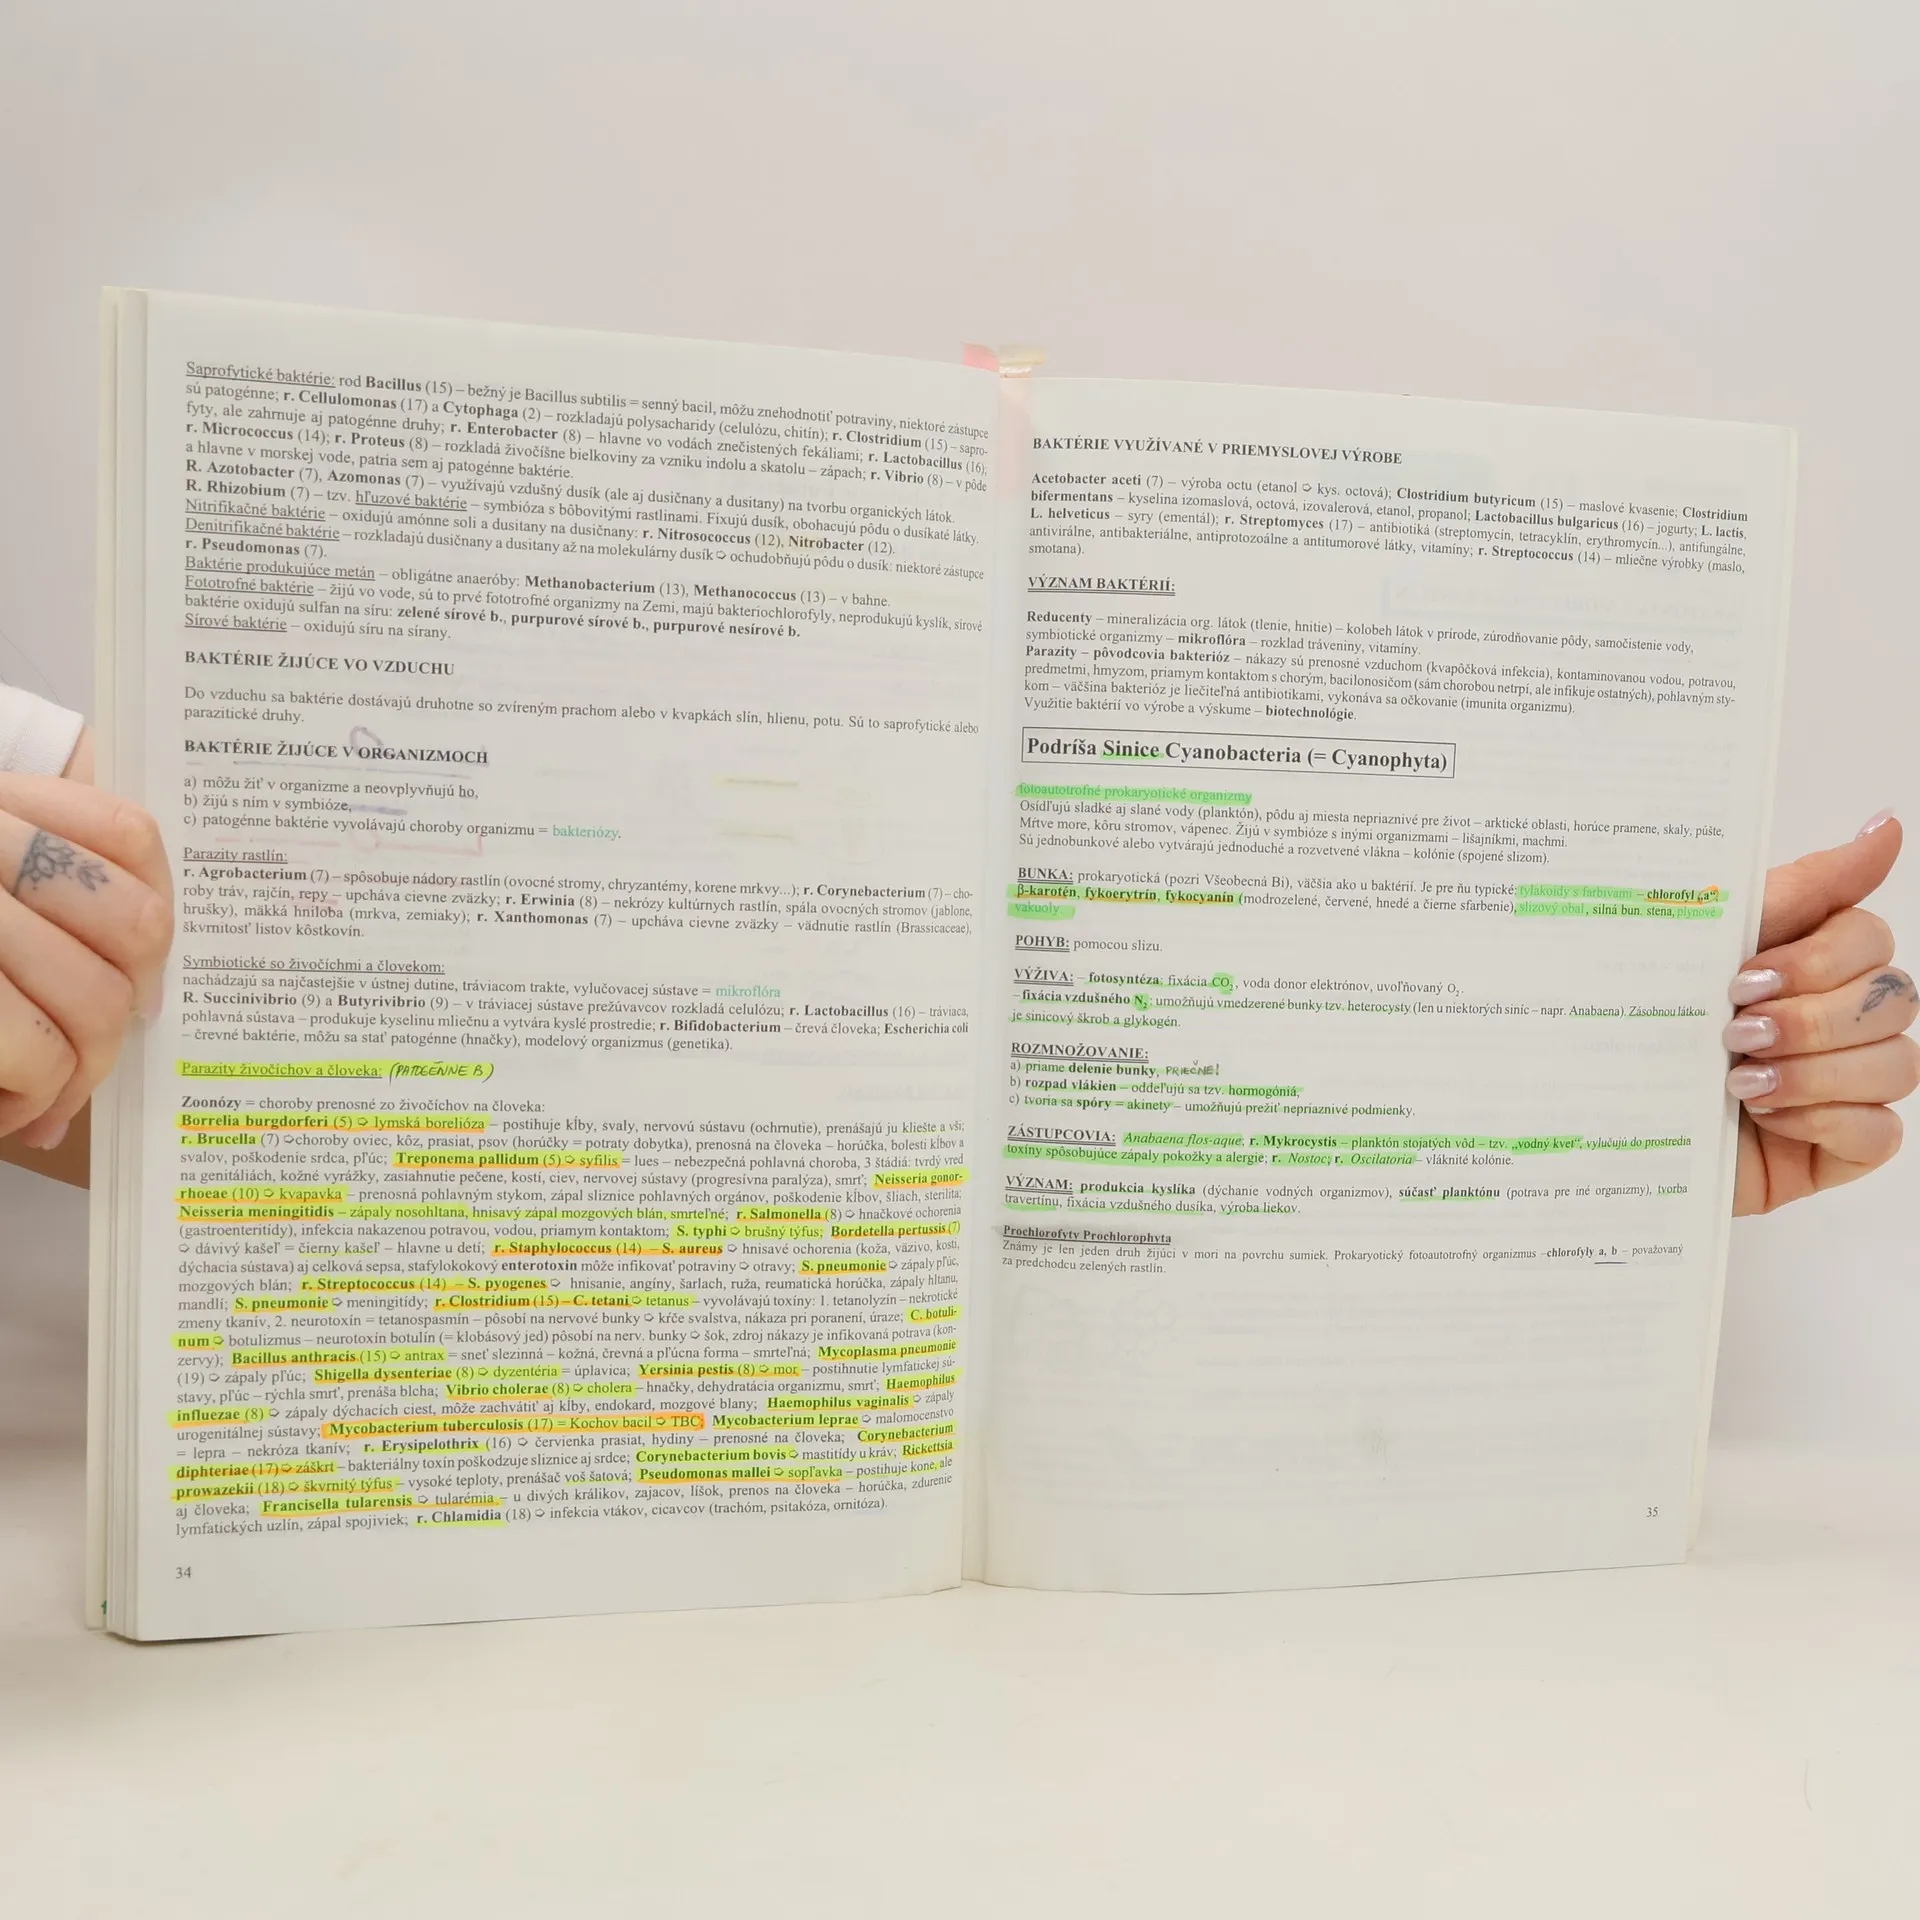 Saprofytické baktérie: rod Bacillus (15) – bežný je Bacillus subtilis = senný bacil, môžu znehodnotiť potraviny, niektoré zástupce
sú patogénne; r. Cellulomonas (17) a Cytophaga (2) – rozkladajú polysacharidy (celulózu, chitín); r. Clostridium (15) – sapro-
fyty, ale zahrnuje aj patogénne druhy; r. Enterobacter (8) – hlavne vo vodách znečistených fekáliami; r. Lactobacillus (16);
r. Micrococcus (14); r. Proteus (8) – rozkladá živočíšne bielkoviny za vzniku indolu a skatolu – zápach; r. Vibrio (8) – v pôde
a hlavne v morskej vode, patria sem aj patogénne baktérie.
R. Azotobacter (7), Azomonas (7) – využívajú vzdušný dusík (ale aj dusičnany a dusitany) na tvorbu organických látok.
R. Rhizobium (7) – tzv. hľuzové baktérie – symbióza s bôbovitými rastlinami. Fixujú dusík, obohacujú pôdu o dusíkaté látky.
Nitrifikačné baktérie – oxidujú amónne soli a dusitany na dusičnany: r. Nitrosococcus (12), Nitrobacter (12).
Denitrifikačné baktérie – rozkladajú dusičnany a dusitany až na molekulárny dusík ➩ ochudobňujú pôdu o dusík: niektoré zástupce
r. Pseudomonas (7).
Baktérie produkujúce metán – obligátne anaeróby: Methanobacterium (13), Methanococcus (13) – v bahne.
Fototrofné baktérie – žijú vo vode, sú to prvé fototrofné organizmy na Zemi, majú bakteriochlorofyly, neprodukujú kyslík, sírové
baktérie oxidujú sulfan na síru: zelené sírové b., purpurové sírové b., purpurové nesírové b.
Sírové baktérie – oxidujú síru na sírany.
BAKTÉRIE ŽIJÚCE VO VZDUCHU
Do vzduchu sa baktérie dostávajú druhotne so zvíreným prachom alebo v kvapkách slín, hlienu, potu. Sú to saprofytické alebo
parazitické druhy.
BAKTÉRIE ŽIJÚCE V ORGANIZMOCH
a) môžu žiť v organizme a neovplyvňujú ho,
b) žijú s ním v symbióze,
c) patogénne baktérie vyvolávajú choroby organizmu = bakteriózy.
Parazity rastlín:
r. Agrobacterium (7) – spôsobuje nádory rastlín (ovocné stromy, chryzantémy, korene mrkvy...); r. Corynebacterium (7) – cho-
roby tráv, rajčín, repy – upcháva cievne zväzky; r. Erwinia (8) – nekrózy kultúrnych rastlín, spála ovocných stromov (jablone,
hrušky), mäkká hniloba (mrkva, zemiaky); r. Xanthomonas (7) – upcháva cievne zväzky – vädnutie rastlín (Brassicaceae),
škvrnitosť listov kôstkovín.
Symbiotické so živočíchmi a človekom:
nachádzajú sa najčastejšie v ústnej dutine, tráviacom trakte, vylučovacej sústave = mikroflóra
R. Succinivibrio (9) a Butyrivibrio (9) – v tráviacej sústave prežúvavcov rozkladá celulózu; r. Lactobacillus (16) – tráviaca,
pohlavná sústava – produkuje kyselinu mliečnu a vytvára kyslé prostredie; r. Bifidobacterium – črevá človeka; Escherichia coli
– črevné baktérie, môžu sa stať patogénne (hnačky), modelový organizmus (genetika).
Parazity živočíchov a človeka: (PATOGÉNNE B)
Zoonózy = choroby prenosné zo živočíchov na človeka:
Borrelia burgdorferi (5) ➩ lymská borelióza – postihuje kĺby, svaly, nervovú sústavu (ochrnutie), prenášajú ju kliešte a vši;
r. Brucella (7) ➩choroby oviec, kôz, prasiat, psov (horúčky = potraty dobytka), prenosná na človeka – horúčka, bolesti kĺbov a
svalov, poškodenie srdca, pľúc; Treponema pallidum (5) ➩ syfilis = lues – nebezpečná pohlavná choroba, 3 štádiá: tvrdý vred
na genitáliách, kožné vyrážky, zasiahnutie pečene, kostí, ciev, nervovej sústavy (progresívna paralýza), smrť; Neisseria gonor-
rhoeae (10) ➩ kvapavka – prenosná pohlavným stykom, zápal sliznice pohlavných orgánov, poškodenie kĺbov, šliach, sterilita;
Neisseria meningitidis – zápaly nosohltana, hnisavý zápal mozgových blán, smrteľné; r. Salmonella (8) ➩ hnačkové ochorenia
(gastroenteritídy), infekcia nakazenou potravou, vodou, priamym kontaktom; S. typhi ➩ brušný týfus; Bordetella pertussis (7)
➩ dávivý kašeľ = čierny kašeľ – hlavne u detí; r. Staphylococcus (14) – S. aureus ➩ hnisavé ochorenia (koža, väzivo, kosti,
dýchacia sústava) aj celková sepsa, stafylokokový enterotoxin môže infikovať potraviny ➩ otravy; S. pneumonie ➩ zápaly pľúc,
mozgových blán; r. Streptococcus (14) – S. pyogenes ➩ hnisanie, angíny, šarlach, ruža, reumatická horúčka, zápaly hltanu,
mandlí; S. pneumonie ➩ meningitídy; r. Clostridium (15) – C. tetani ➩ tetanus – vyvolávajú toxíny: 1. tetanolyzín – nekrotické
zmeny tkanív, 2. neurotoxín = tetanospasmín – pôsobí na nervové bunky ➩ kŕče svalstva, nákaza pri poranení, úraze; C. botuli-
num ➩ botulizmus – neurotoxín botulín (= klobásový jed) pôsobí na nerv. bunky ➩ šok, zdroj nákazy je infikovaná potrava (kon-
zervy); Bacillus anthracis (15) ➩ antrax = sneť slezinná – kožná, črevná a pľúcna forma – smrteľná; Mycoplasma pneumonie
(19) ➩ zápaly pľúc; Shigella dysenteriae (8) ➩ dyzentéria = úplavica; Yersinia pestis (8) ➩ mor – postihnutie lymfatickej sú-
stavy, pľúc – rýchla smrť, prenáša blcha; Vibrio cholerae (8) ➩ cholera – hnačky, dehydratácia organizmu, smrť; Haemophilus
influezae (8) ➩ zápaly dýchacích ciest, môže zachvátiť aj kĺby, endokard, mozgové blany; Haemophilus vaginalis ➩ zápaly
urogenitálnej sústavy; Mycobacterium tuberculosis (17) = Kochov bacil ➩ TBC; Mycobacterium leprae ➩ malomocenstvo
= lepra – nekróza tkanív; r. Erysipelothrix (16) ➩ červienka prasiat, hydiny – prenosné na človeka; Corynebacterium
diphteriae (17) ➩ záškrt – bakteriálny toxín poškodzuje sliznice aj srdce; Corynebacterium bovis ➩ mastitídy u kráv; Rickettsia
prowazekii (18) ➩ škvrnitý týfus – vysoké teploty, prenášač voš šatová; Pseudomonas mallei ➩ sopľavka – postihuje kone, ale
aj človeka; Francisella tularensis ➩ tularémia – u divých králikov, zajacov, líšok, prenos na človeka – horúčka, zdurenie
lymfatických uzlín, zápal spojiviek; r. Chlamidia (18) ➩ infekcia vtákov, cicavcov (trachóm, psitakóza, ornitóza).
34
BAKTÉRIE VYUŽÍVANÉ V PRIEMYSLOVEJ VÝROBE
Acetobacter aceti (7) – výroba octu (etanol ➩ kys. octová); Clostridium butyricum (15) – maslové kvasenie; Clostridium
bifermentans – kyselina izomaslová, octová, izovalerová, etanol, propanol; Lactobacillus bulgaricus (16) – jogurty; L. lactis,
L. helveticus – syry (ementál); r. Streptomyces (17) – antibiotiká (streptomycín, tetracyklín, erythromycín...), antifungálne,
antivirálne, antibakteriálne, antiprotozoálne a antitumorové látky, vitamíny; r. Streptococcus (14) – mliečne výrobky (maslo,
smotana).
VÝZNAM BAKTÉRIÍ:
Reducenty – mineralizácia org. látok (tlenie, hnitie) – kolobeh látok v prírode, zúrodňovanie pôdy, samočistenie vody,
symbiotické organizmy – mikroflóra – rozklad tráveniny, vitamíny.
Parazity – pôvodcovia bakterióz – nákazy sú prenosné vzduchom (kvapôčková infekcia), kontaminovanou vodou, potravou,
predmetmi, hmyzom, priamym kontaktom s chorým, bacilonosičom (sám chorobou netrpí, ale infikuje ostatných), pohlavným sty-
kom – väčšina bakterióz je liečiteľná antibiotikami, vykonáva sa očkovanie (imunita organizmu).
Využitie baktérií vo výrobe a výskume – biotechnológie.
Podríša Sinice Cyanobacteria (= Cyanophyta)
fotoautotrofné prokaryotické organizmy
Osídľujú sladké aj slané vody (planktón), pôdu aj miesta nepriaznivé pre život – arktické oblasti, horúce pramene, skaly, púšte,
Mŕtve more, kôru stromov, vápenec. Žijú v symbióze s inými organizmami – lišajníkmi, machmi.
Sú jednobunkové alebo vytvárajú jednoduché a rozvetvené vlákna – kolónie (spojené slizom).
BUNKA: prokaryotická (pozri Všeobecná Bi), väčšia ako u baktérií. Je pre ňu typické: tylakoidy s farbivami – chlorofyl „a“,
β-karotén, fykoerytrín, fykocyanín (modrozelené, červené, hnedé a čierne sfarbenie), slizový obal, silná bun. stena, plynové
vakuoly.
POHYB: pomocou slizu.
VÝŽIVA: – fotosyntéza: fixácia CO₂, voda donor elektrónov, uvoľňovaný O₂.
– fixácia vzdušného N₂: umožňujú vmedzerené bunky tzv. heterocysty (len u niektorých siníc – napr. Anabaena). Zásobnou látkou
je sinicový škrob a glykogén.
ROZMNOŽOVANIE:
a) priame delenie bunky, PRIEČNE!
b) rozpad vlákien – oddeľujú sa tzv. hormogóniá,
c) tvoria sa spóry = akinety – umožňujú prežiť nepriaznivé podmienky.
ZÁSTUPCOVIA: Anabaena flos-aque; r. Mykrocystis – planktón stojatých vôd – tzv. „vodný kvet“, vylučujú do prostredia
toxíny spôsobujúce zápaly pokožky a alergie; r. Nostoc; r. Oscilatoria – vláknité kolónie.
VÝZNAM: produkcia kyslíka (dýchanie vodných organizmov), súčasť planktónu (potrava pre iné organizmy), tvorba
travertínu, fixácia vzdušného dusíka, výroba liekov.
Prochlorofyty Prochlorophyta
Známy je len jeden druh žijúci v mori na povrchu sumiek. Prokaryotický fotoautotrofný organizmus –chlorofyly a, b – považovaný
za predchodcu zelených rastlín.
35